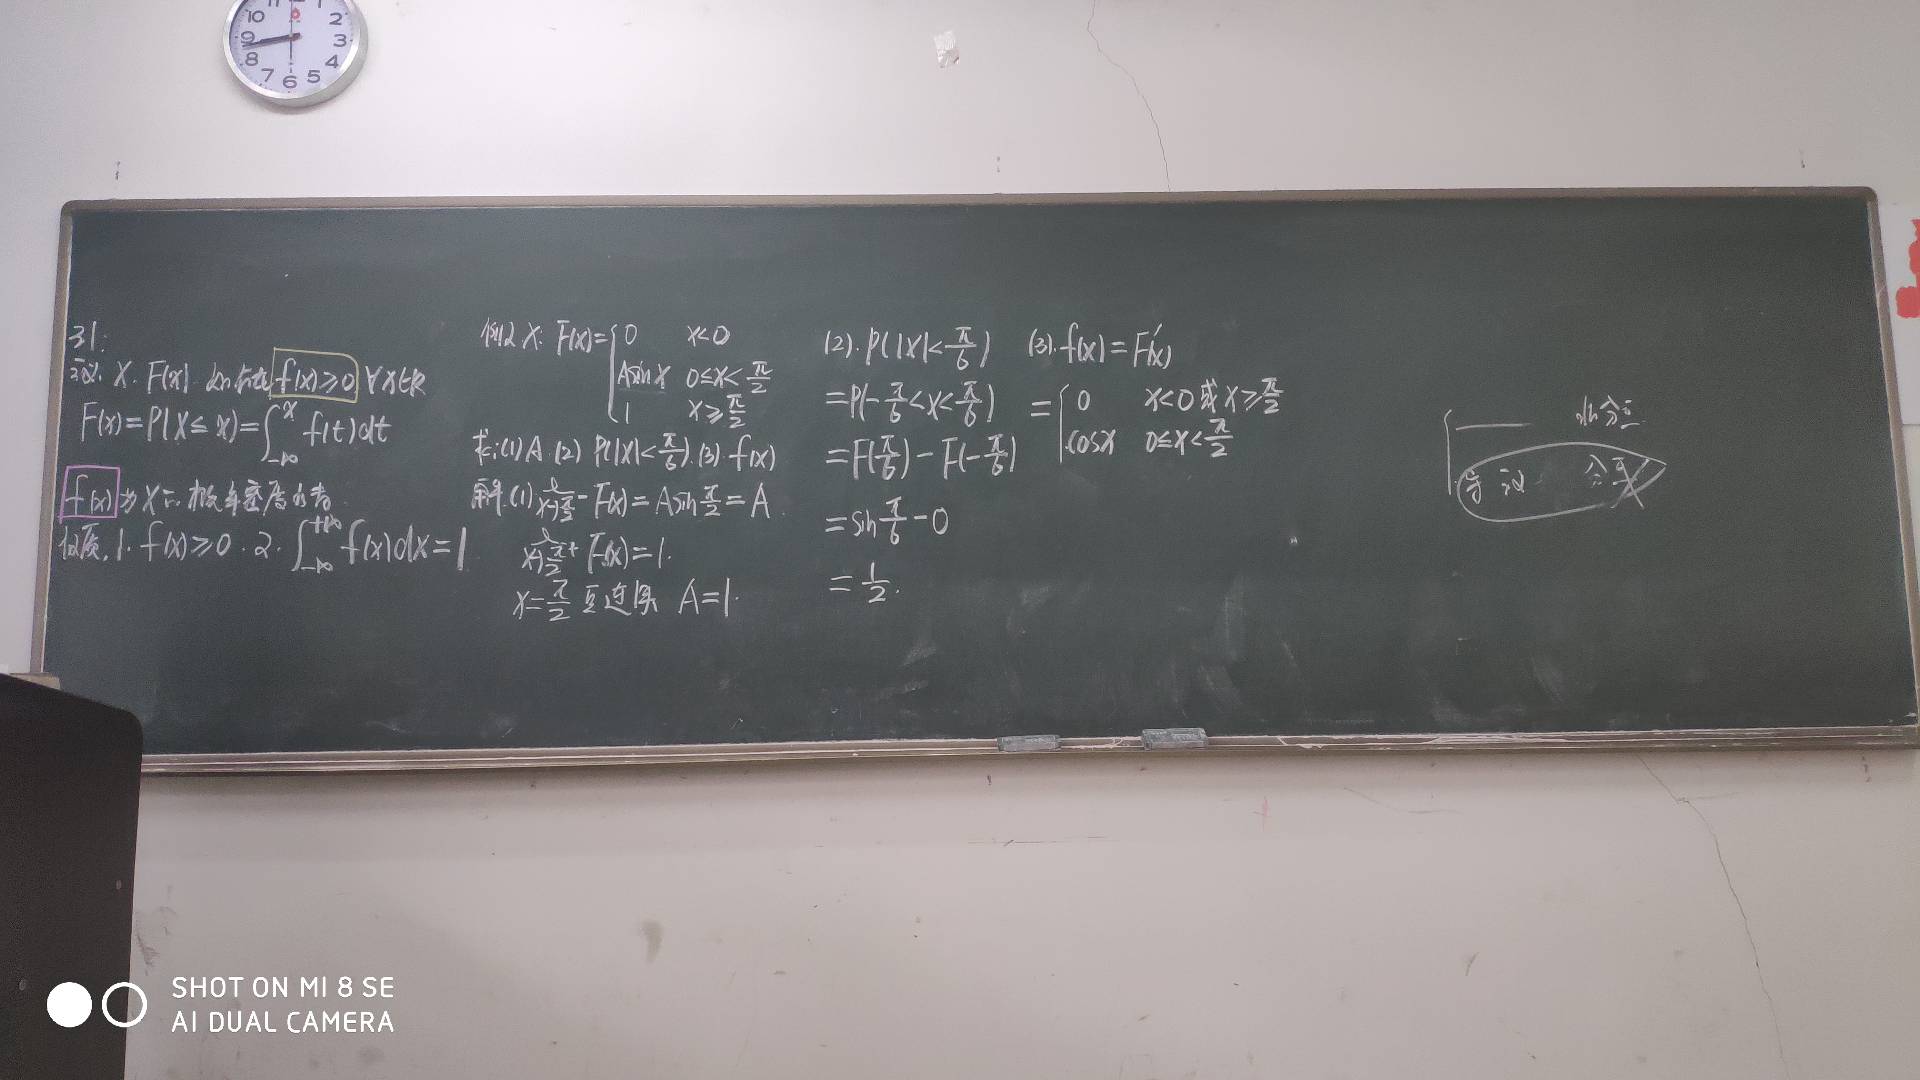 11 1
10 2
9 3
8 4
7 6 5
31:
设 X. F(x). 如存在 f(x)≥0 ∀x∈R
F(x)=P(X≤x)=∫_{-∞}^{x} f(t)dt
f(x)为X的概率密度函数
性质. 1. f(x)≥0. 2. ∫_{-∞}^{+∞} f(x)dx=1
例2 X. F(x)={0 x<0
Asinx 0≤x<π/2
1 x≥π/2
求:(1)A.(2) P(|X|<π/6).(3).f(x)
解.(1) l x→π/2- F(x)=Asinπ/2=A
l x→π/2+ F(x)=1.
x=π/2 连续 A=1.
(2). P(|X|<π/6)
=P(-π/6<x<π/6)
=F(π/6)-F(-π/6)
=sinπ/6-0
=1/2.
(3).f(x)=F'(x)
={0 x<0或x≥π/2
cosx 0≤x<π/2
SHOT ON MI 8 SE
AI DUAL CAMERA